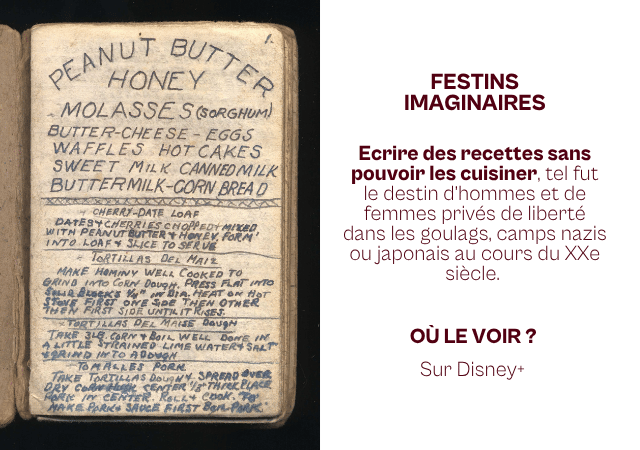 1.
PEANUT BUTTER
HONEY
MOLASSES (SORGHUM)
BUTTER-CHEESE-EGGS
WAFFLES HOT CAKES
SWEET MILK CANNED MILK
BUTTERMILK-CORN BREAD
CHERRY-DATE LOAF
DATES & CHERRIES CHOPPED & MIXED
WITH PEANUT BUTTER & HONEY. FORM
INTO LOAF & SLICE TO SERVE
TORTILLAS DEL MAIZ
MAKE HOMINY WELL COOKED TO
GRIND INTO CORN DOUGH. PRESS FLAT INTO
SOLID BLOCKS 1/4" IN DIA. HEAT ON HOT
STOVE FIRST ONE SIDE THEN OTHER
THEN FIRST SIDE UNTIL IT RISES.
TORTILLAS DEL MAISE DOUGH
TAKE 3LB. CORN & BOIL WELL DONE IN
A LITTLE STRAINED LIME WATER & SALT
& GRIND INTO A DOUGH
TOMALLES PORK
TAKE TORTILLAS DOUGH & SPREAD OVER
DRY CORN CENTER THICK PLACE
PORK IN CENTER. ROLL & COOK. TO
MAKE PORK & SAUCE FIRST BOIL PORK.
FESTINS
IMAGINAIRES
Ecrire des recettes sans
pouvoir les cuisiner, tel fut
le destin d'hommes et de
femmes privés de liberté
dans les goulags, camps nazis
ou japonais au cours du XXe
siècle.
OÙ LE VOIR ?
Sur Disney+